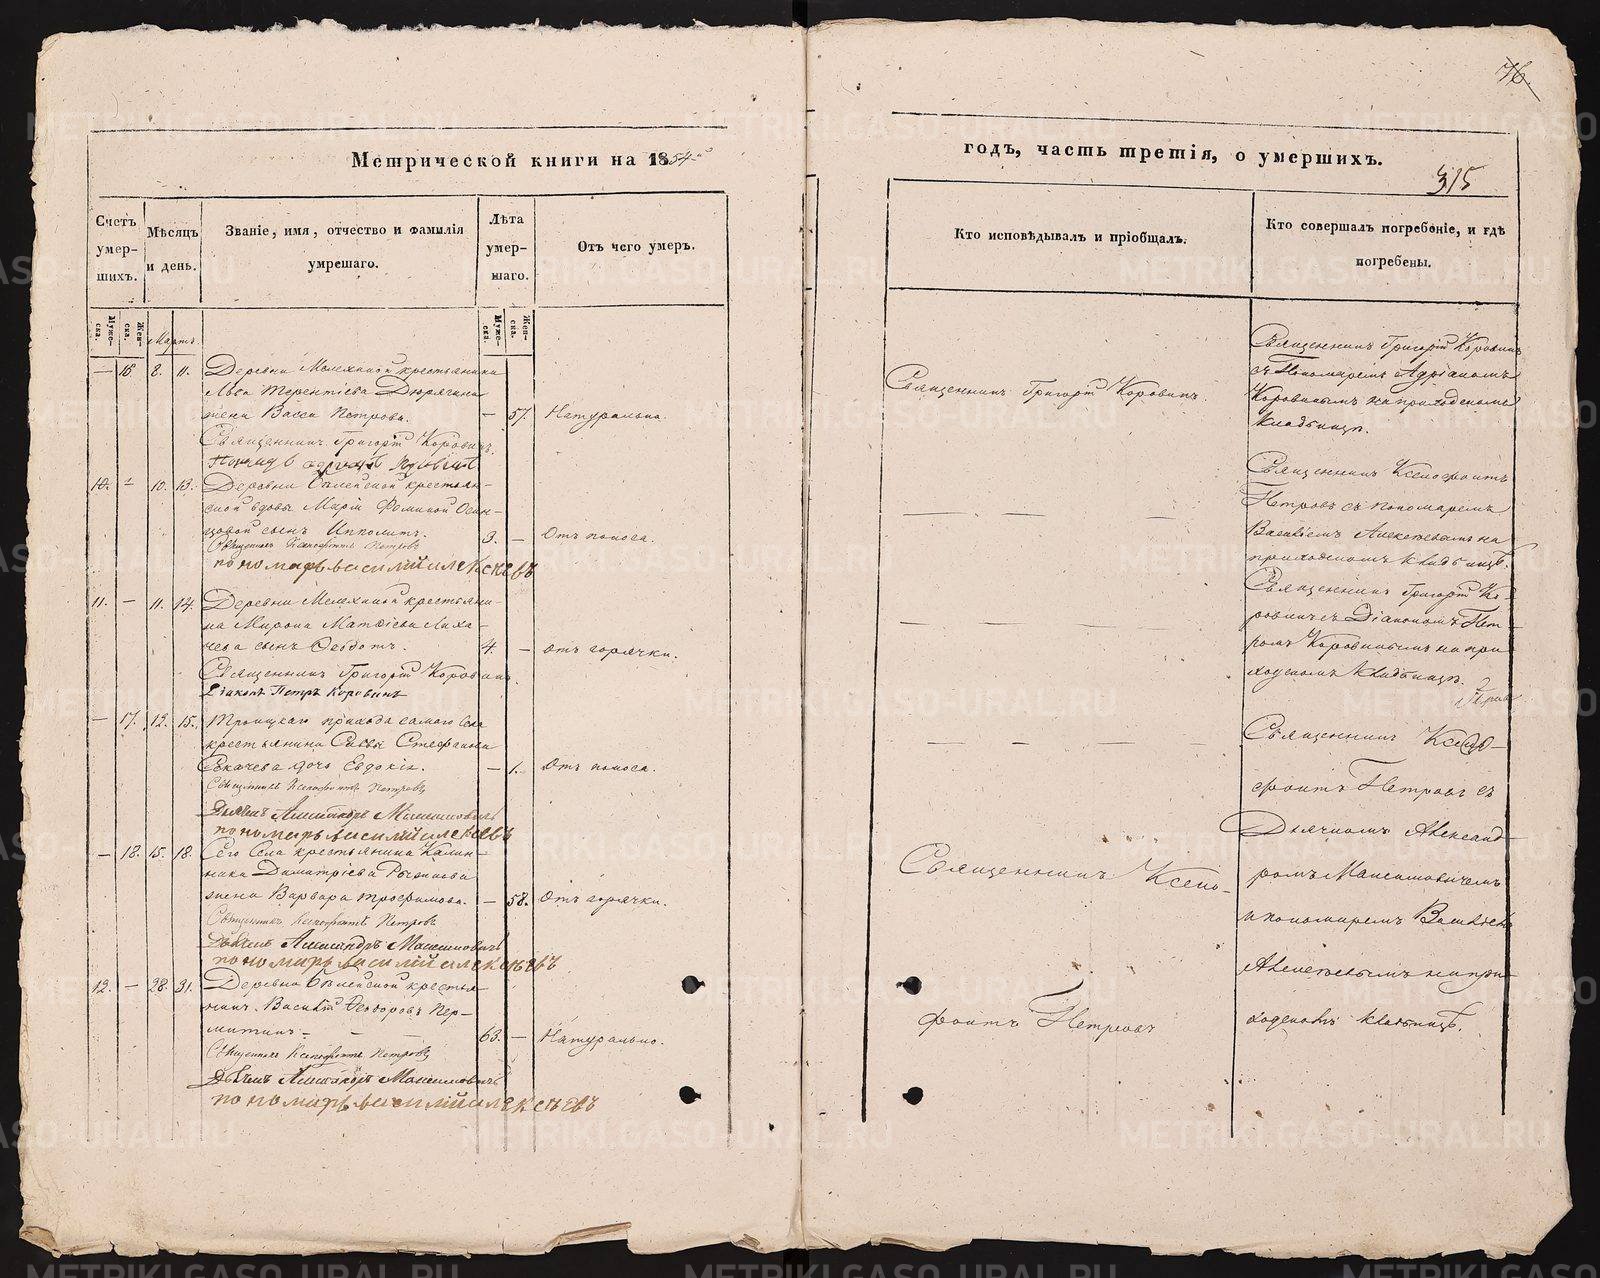 76.
Метрической книги на 1854й
годъ, часть третія, о умершихъ.
315
Счетъ умер-шихъ.
Мѣсяцъ и день.
Званіе, имя, отчество и фамилія умершаго.
Лѣта умер-шаго.
Отъ чего умеръ.
Кто исповѣдывалъ и пріобщалъ.
Кто совершалъ погребеніе, и гдѣ погребены.
Муже-ска.
Жен-ска.
Мартъ
Муже-ска.
Жен-ска.
— 16. 8. 11. Деревни Мелехиной крестьянина
Льва Терентіева Дюрягина
жена Васса Петрова. — 57. Натурально.
Священникъ Григорій Коровинъ.
Священникъ Григорій Коровинъ.
Священникъ Григорій Коровинъ
съ Пономаремъ Адріаномъ
Коровинымъ на приходскомъ
кладбищѣ.
10. — 10. 13. Деревни крестьян-
ской вдовы Маріи Фоминой Осин-
цовой сынъ Ипполитъ. 3. — Отъ поноса.
Священникъ Ксенофонтъ Петровъ
пономарь василий алексѣевъ
Священникъ Ксенофонтъ
Петровъ съ пономаремъ
Василіемъ Алексѣевымъ на
приходскомъ кладбищѣ.
11. — 11. 14. Деревни Мелехиной крестьяни-
на Мирона Матѳіева Лиха-
чева сынъ Ѳеодотъ. 4. — отъ горячки.
Священникъ Григорій Коровинъ
Діаконъ Петръ Коровинъ
Священникъ Григорій Ко-
ровинъ съ Діакономъ Пет-
ромъ Коровинымъ на при-
ходскомъ кладбищѣ.
— 17. 12. 15. Троицкаго прихода самаго Села
крестьянина Саввы Стефанова
дочь Евдокія. — 1. Отъ поноса.
Священникъ Ксенофонтъ Петровъ
Дьячекъ Александръ Максимовичъ
пономарь василий алексѣевъ
Священникъ Ксено-
фонтъ Петровъ съ
Дьячкомъ Александ-
ромъ Максимовичемъ
и пономаремъ Василіемъ
Алексѣевымъ на при-
ходскомъ кладбищѣ.
— 18. 15. 18. Сего Села крестьянина Калин-
ника Димитріева
жена Варвара Трофимова. — 58. Отъ горячки.
Священникъ Ксенофонтъ Петровъ
Дьячекъ Александръ Максимовичъ
пономарь василий алексѣевъ
Священникъ Ксено-
фонтъ Петровъ
12. — 28. 31. Деревни крестья-
нинъ Василій Ѳеодоровъ Пер-
митинъ — — 63. — Натурально.
Священникъ Ксенофонтъ Петровъ
Дьячекъ Александръ Максимовичъ
пономарь василий алексѣевъ
METRIKI.GASO-URAL.RU